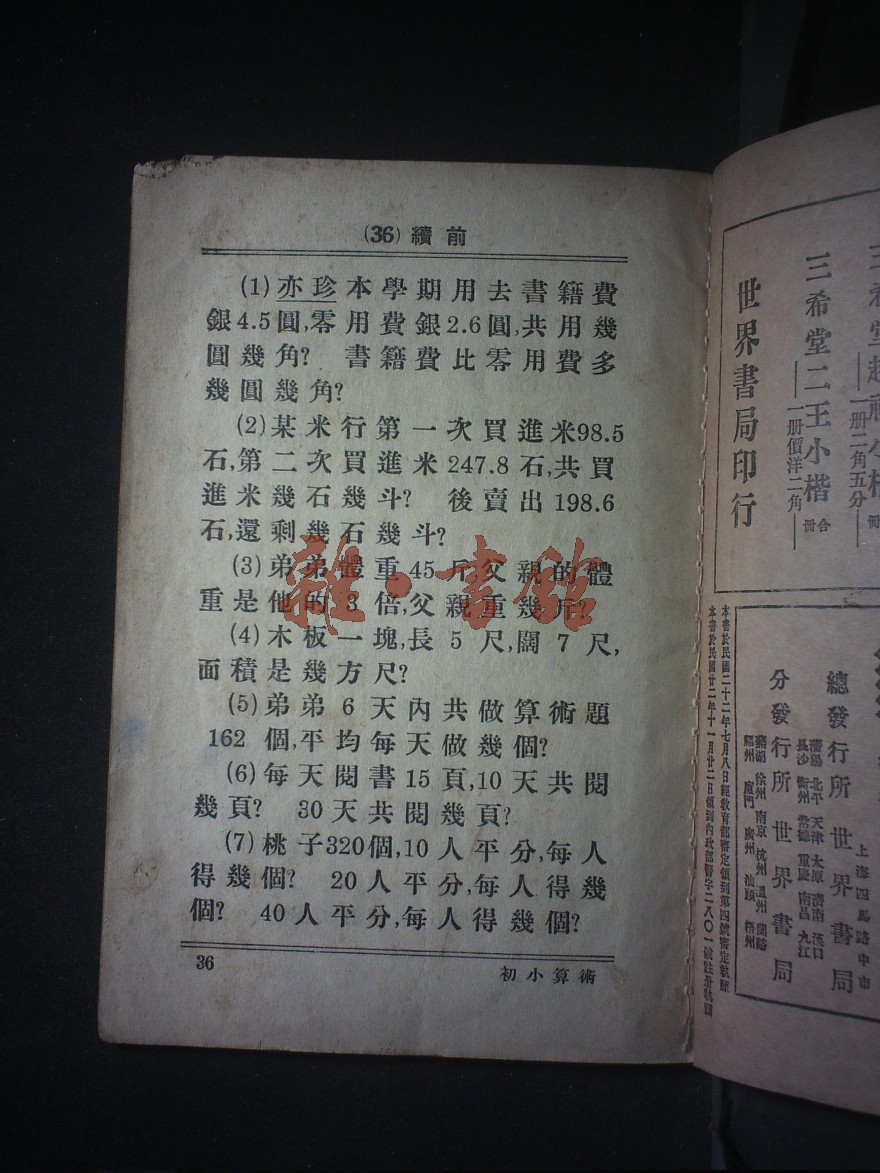 (36) 續前
(1) 亦珍本學期用去書籍費
銀4.5圓,零用費銀2.6圓,共用幾
圓幾角? 書籍費比零用費多
幾圓幾角?
(2) 某米行第一次買進米98.5
石,第二次買進米247.8石,共買
進米幾石幾斗? 後賣出198.6
石,還剩幾石幾斗?
(3) 弟弟體重45斤,父親的體
重是他的3倍,父親重幾斤?
(4) 木板一塊,長5尺,闊7尺,
面積是幾方尺?
(5) 弟弟6天內共做算術題
162個,平均每天做幾個?
(6) 每天閱書15頁,10天共閱
幾頁? 30天共閱幾頁?
(7) 桃子320個,10人平分,每人
得幾個? 20人平分,每人得幾
個? 40人平分,每人得幾個?
36
初小算術
雜·書館
一册二角五分
三希堂二王小楷
合册
一册價洋二角
世界書局印行
上海四馬路中市
總發行所 世界書局
瀋陽 北平 天津 太原 濟南 漢口
長沙 衢州 常德 重慶 南昌 九江
分發行所 世界書局
蕪湖 徐州 南京 杭州 溫州 開路
廈門 廣州 汕頭 梧州
本書於民國二十二年七月八日經教育部審定領到第四號審定執照
本書於民國廿二年十一月廿二日領到內政部警字二八〇一號註册執照